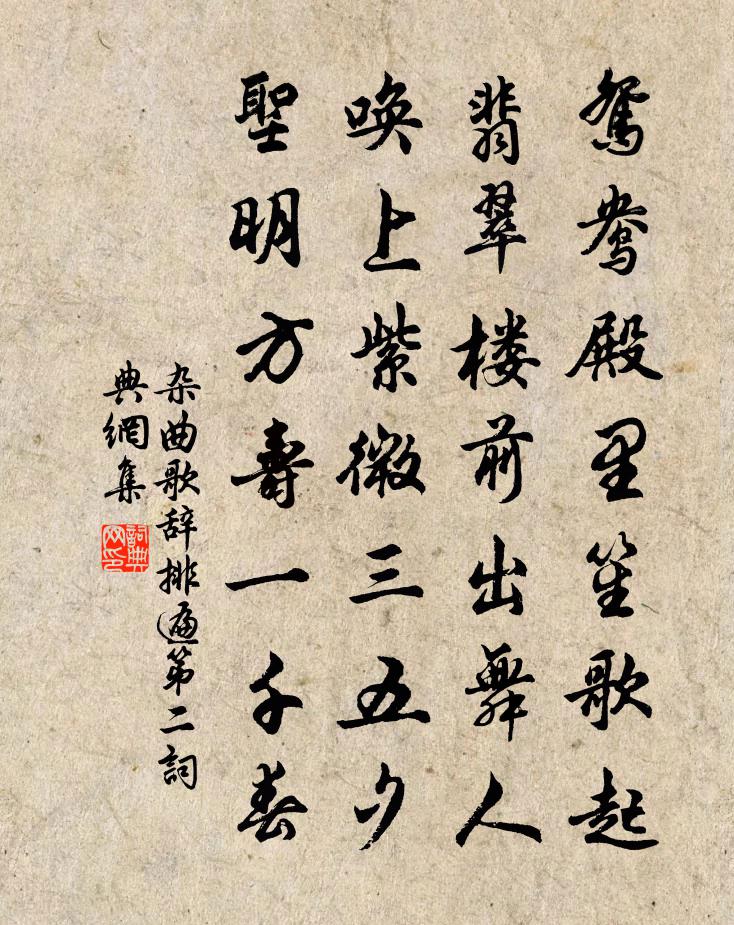 鸳鸯殿里笙歌起
翡翠楼前出舞人
唤上紫微三五夕
聖明方壽一千春
杂曲歌辞排遍第二詞
典網集
詞典网印